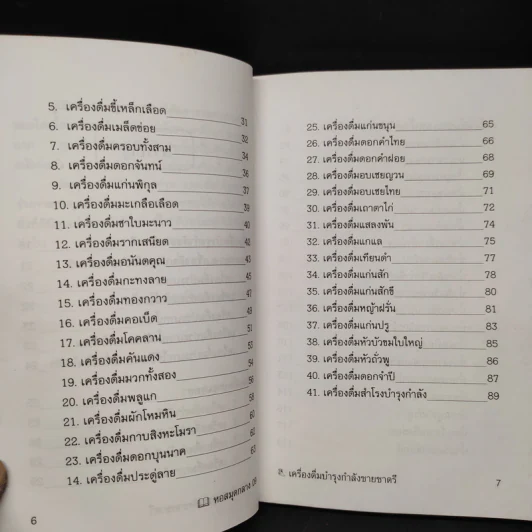 5. เครื่องดื่มขี้เหล็กเลือด 31
6. เครื่องดื่มเมล็ดช่อย 32
7. เครื่องดื่มครอบทั้งสาม 34
8. เครื่องดื่มดอกจันทน์ 36
9. เครื่องดื่มแก่นพิกุล 37
10. เครื่องดื่มมะเกลือเลือด 39
11. เครื่องดื่มชาใบมะนาว 40
12. เครื่องดื่มรากเสนียด 40
13. เครื่องดื่มอนันตคุณ 43
14. เครื่องดื่มกะทงลาย 45
15. เครื่องดื่มทองกวาว 47
16. เครื่องดื่มคอเบ็ต 49
17. เครื่องดื่มโคคลาน 51
18. เครื่องดื่มคันแดง 53
19. เครื่องดื่มมวกทั้งสอง 54
20. เครื่องดื่มพลูแก 56
21. เครื่องดื่มผักโหมหิน 58
22. เครื่องดื่มกาบสิงหะโมรา 60
23. เครื่องดื่มดอกบุนนาค 62
14. เครื่องดื่มประดู่ลาย 63
6
หอสมุดกลาง 09
25. เครื่องดื่มแก่นขนุน 65
26. เครื่องดื่มดอกคำไทย 66
27. เครื่องดื่มดอกคำฝอย 68
28. เครื่องดื่มอบเชยญวน 69
29. เครื่องดื่มอบเชยไทย 71
30. เครื่องดื่มเถาตาไก่ 72
31. เครื่องดื่มแสลงพัน 74
32. เครื่องดื่มแกแล 75
33. เครื่องดื่มเทียนดำ 77
34. เครื่องดื่มแก่นสัก 78
35. เครื่องดื่มแก่นสักขี 80
36. เครื่องดื่มหญ้าฝรั่น 81
37. เครื่องดื่มแก่นปรู 83
38. เครื่องดื่มหัวบัวขมใบใหญ่ 85
39. เครื่องดื่มหัวถั่วพู 86
40. เครื่องดื่มดอกจำปี 87
41. เครื่องดื่มสำโรงบำรุงกำลัง 89
ส. เครื่องดื่มบำรุงกำลังชายชาตรี 7